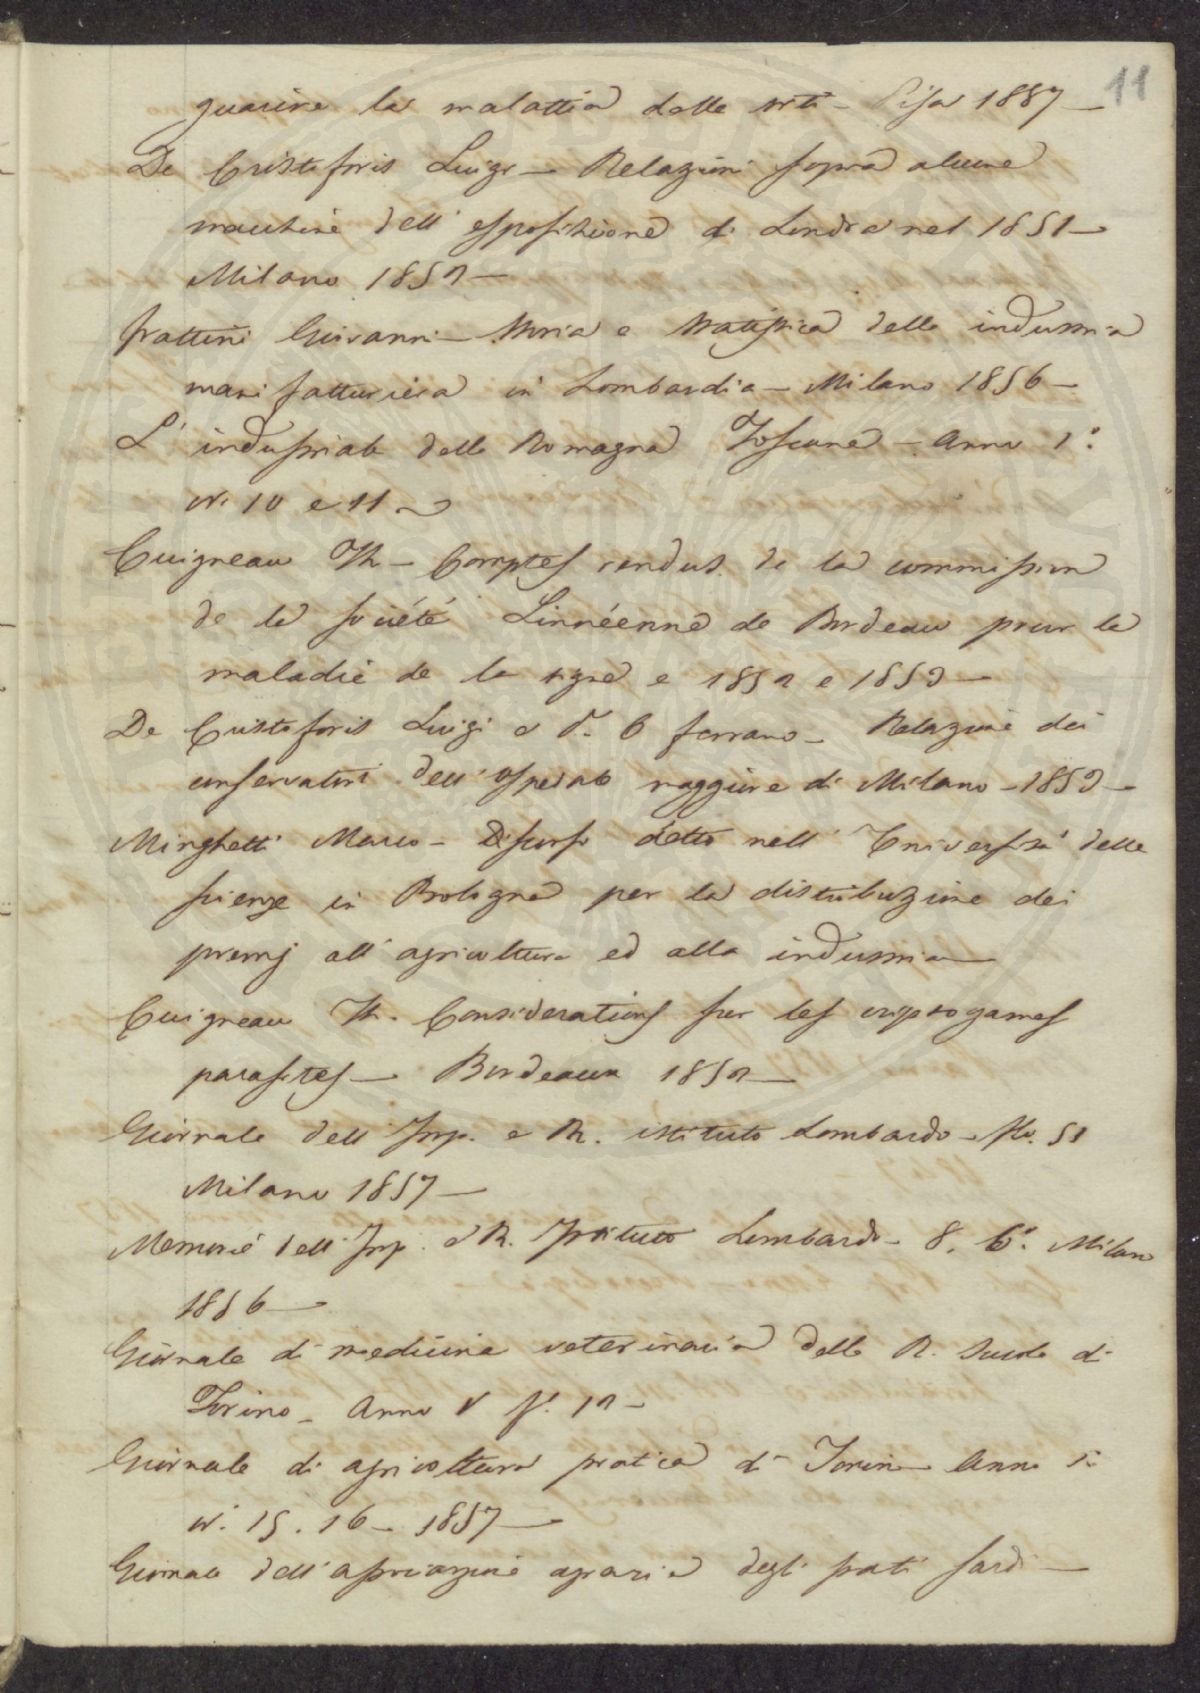 11
guarire la malattia delle viti - Pisa 1857 -
De Cristoforis Luigi - Relazioni sopra alcune
macchine dell' esposizione di Londra nel 1851 -
Milano 1852 -
Frattini Giovanni - Storia e statistica della industria
manifatturiera in Lombardia - Milano 1856 -
L' industriale della Romagna Toscana - Anno 1.°
N. 10 e 11 -
Cuigneau Th - Comptes rendus de la commission
de la société Linnéenne de Bordeau pour la
maladie de la vigne e 1852 e 1853 -
De Cristoforis Luigi e D. C Ferrario - Relazione dei
conservatori dell' Ospedale maggiore di Milano - 1853 -
Minghetti Marco - Discorso detto nell' Università delle
scienze in Bologna per la distribuzione dei
premj all' agricoltura ed alla industria -
Cuigneau Th. Considerations sur les cryptogames
parasites - Bordeaux 1852 -
Giornale dell' Imp. e R. istituto Lombardo - 51
Milano 1857 -
Memorie dell' Imp. e R. Istituto Lombardo - 8. 6.° Milano
1856 -
Giornale di medicina veterinaria della R. Scuola di
Torino - Anno V f. 12 -
Giornale di agricoltura pratica di Torino - Anno 1.°
N. 15. 16 - 1857 -
Giornale dell' associazione agraria degli stati sardi -